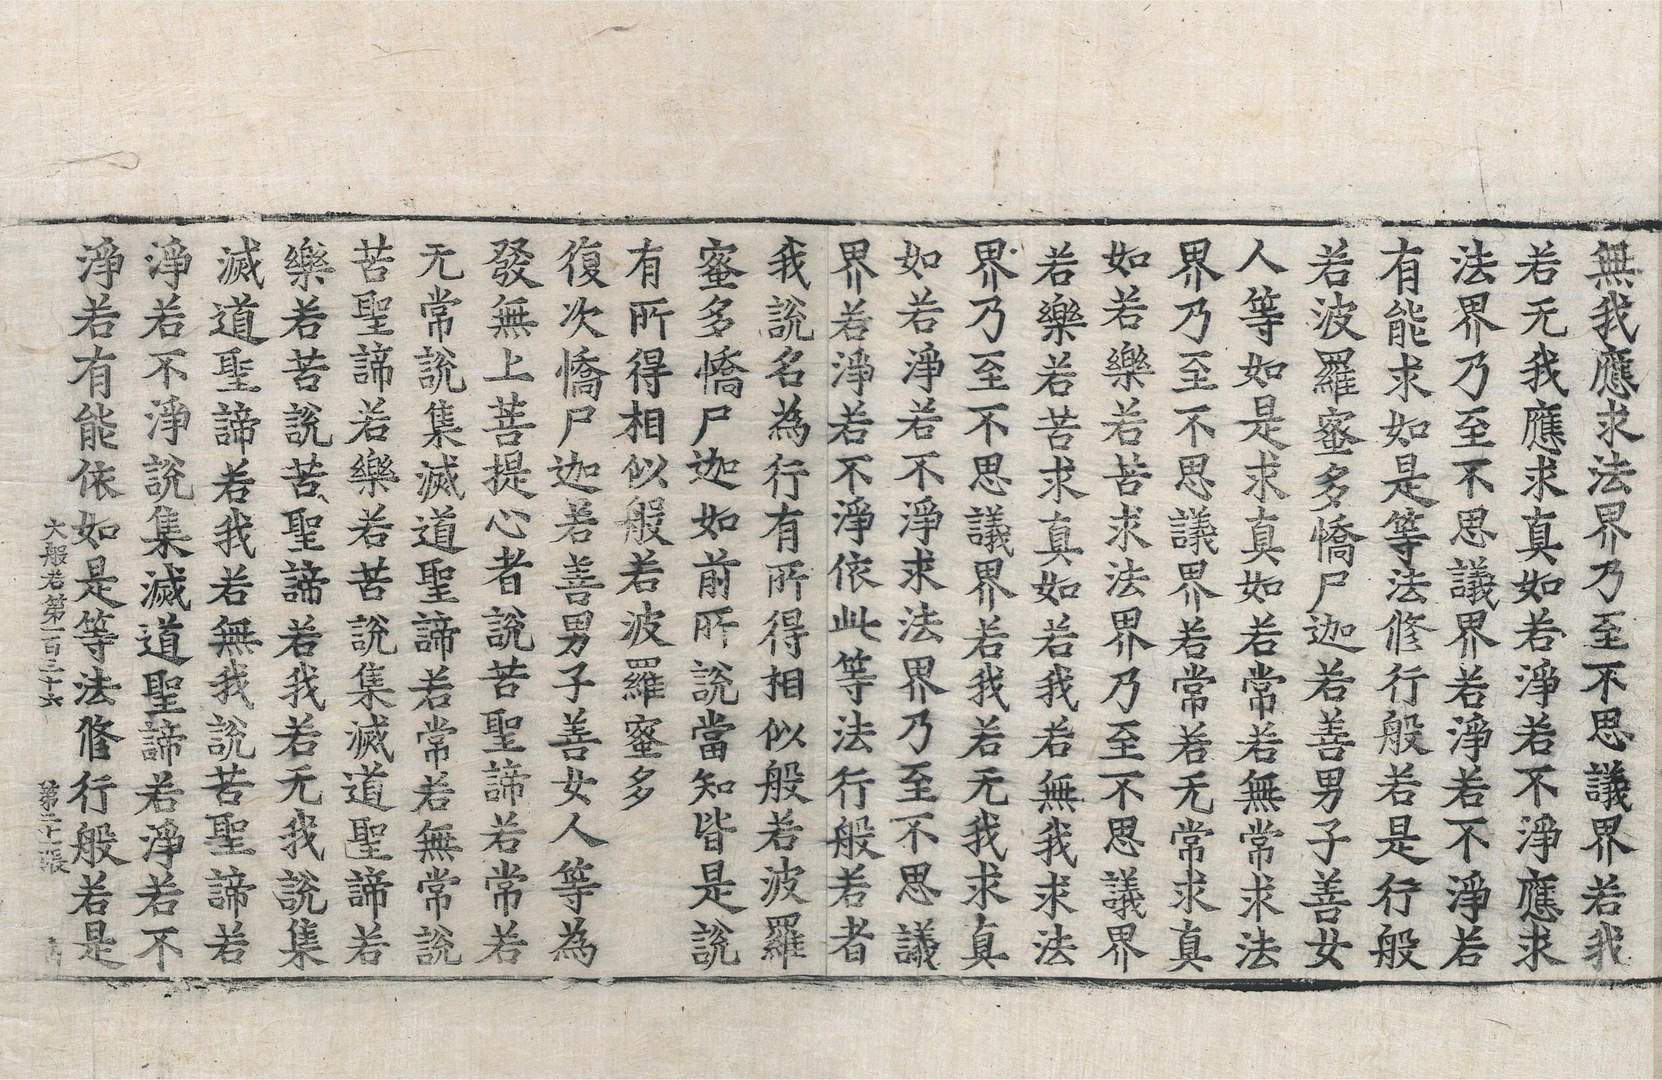 無我應求法界乃至不思議界若我
若无我應求真如若淨若不淨應求
法界乃至不思議界若淨若不淨若
有能求如是等法修行般若是行般
若波羅蜜多憍尸迦若善男子善女
人等如是求真如若常若無常求法
界乃至不思議界若常若无常求真
如若樂若苦求法界乃至不思議界
若樂若苦求真如若我若無我求法
界乃至不思議界若我若无我求真
如若淨若不淨求法界乃至不思議
界若淨若不淨依此等法行般若者
我說名為行有所得相似般若波羅
蜜多憍尸迦如前所說當知皆是說
有所得相似般若波羅蜜多
復次憍尸迦若善男子善女人等為
發無上菩提心者說苦聖諦若常若
无常說集滅道聖諦若常若無常說
苦聖諦若樂若苦說集滅道聖諦若
樂若苦說苦聖諦若我若无我說集
滅道聖諦若我若無我說苦聖諦若
淨若不淨說集滅道聖諦若淨若不
淨若有能依如是等法修行般若是
大般若第一百三十六 第二十一張